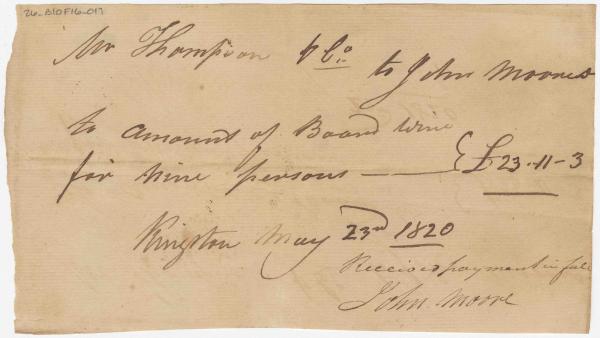 26_B10F16_017
Mr Thompson & Co. to John Moore Dr
to amount of Board Wine
for Nine persons — £ 23-11-3
Kingston May 23rd 1820
Received payment in full
John Moore